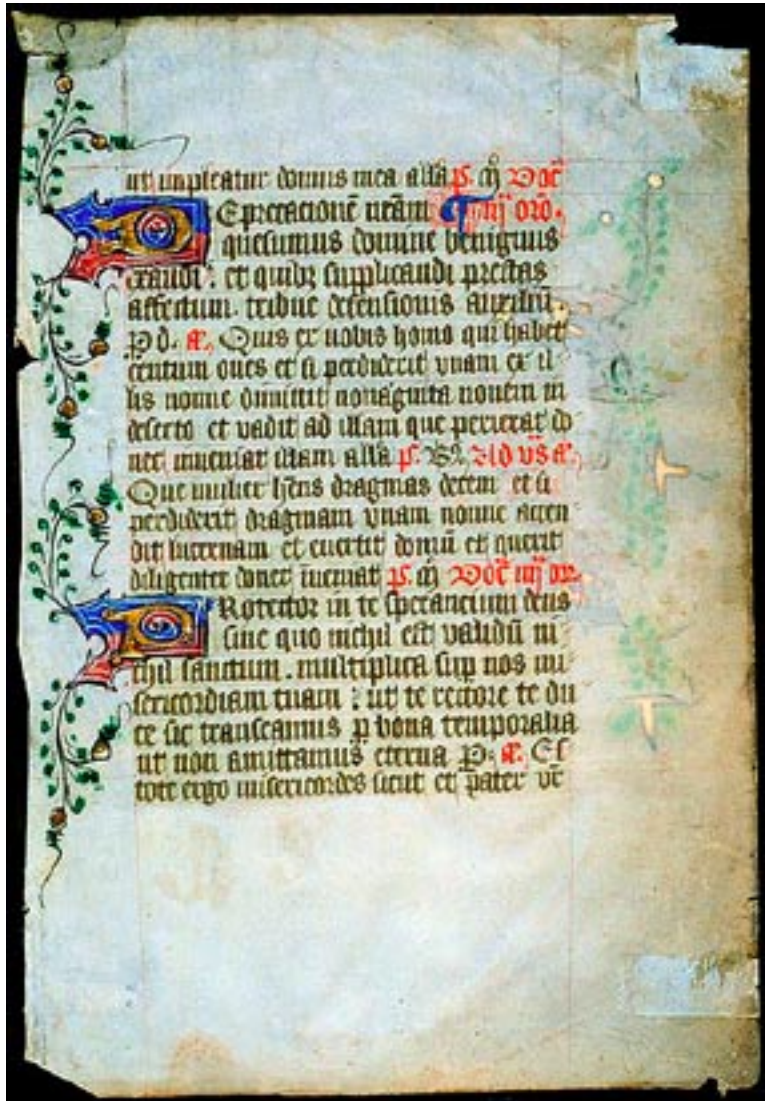 ut impleatur domus mea alła p̄. cū Doc̄
Eprecacionē nr̄am iij oro.
quesumus domine benignus
exaudi : et quibȝ supplicandi prestas
affectum . tribue defensionis auxiliū
P d. a͞. Quis ex uobis homo qui habet
centum oues et si perdiderit vnam ex il
lis nonne dimittit nonaginta nouem in
deserto et vadit ad illam que perierat do
nec inueniat illam alła p̄. Ad vs̄ a͞.
Que mulier hn̄s dragmas decem et si
perdiderit dragmam vnam nonne accen
dit lucernam et euertit domū et querit
diligenter donec īueniat p̄. cū Doc̄ iiij or
Rotector in te sperancium deus
sine quo nichil est validū ni
chil sanctum . multiplica sup̄ nos mi
sericordiam tuam : ut te rectore te du
ce sic transeamus p̄ bona temporalia
ut non amittamus eterna P. a͞. Es
tote ergo misericordes sicut et pater vr̄